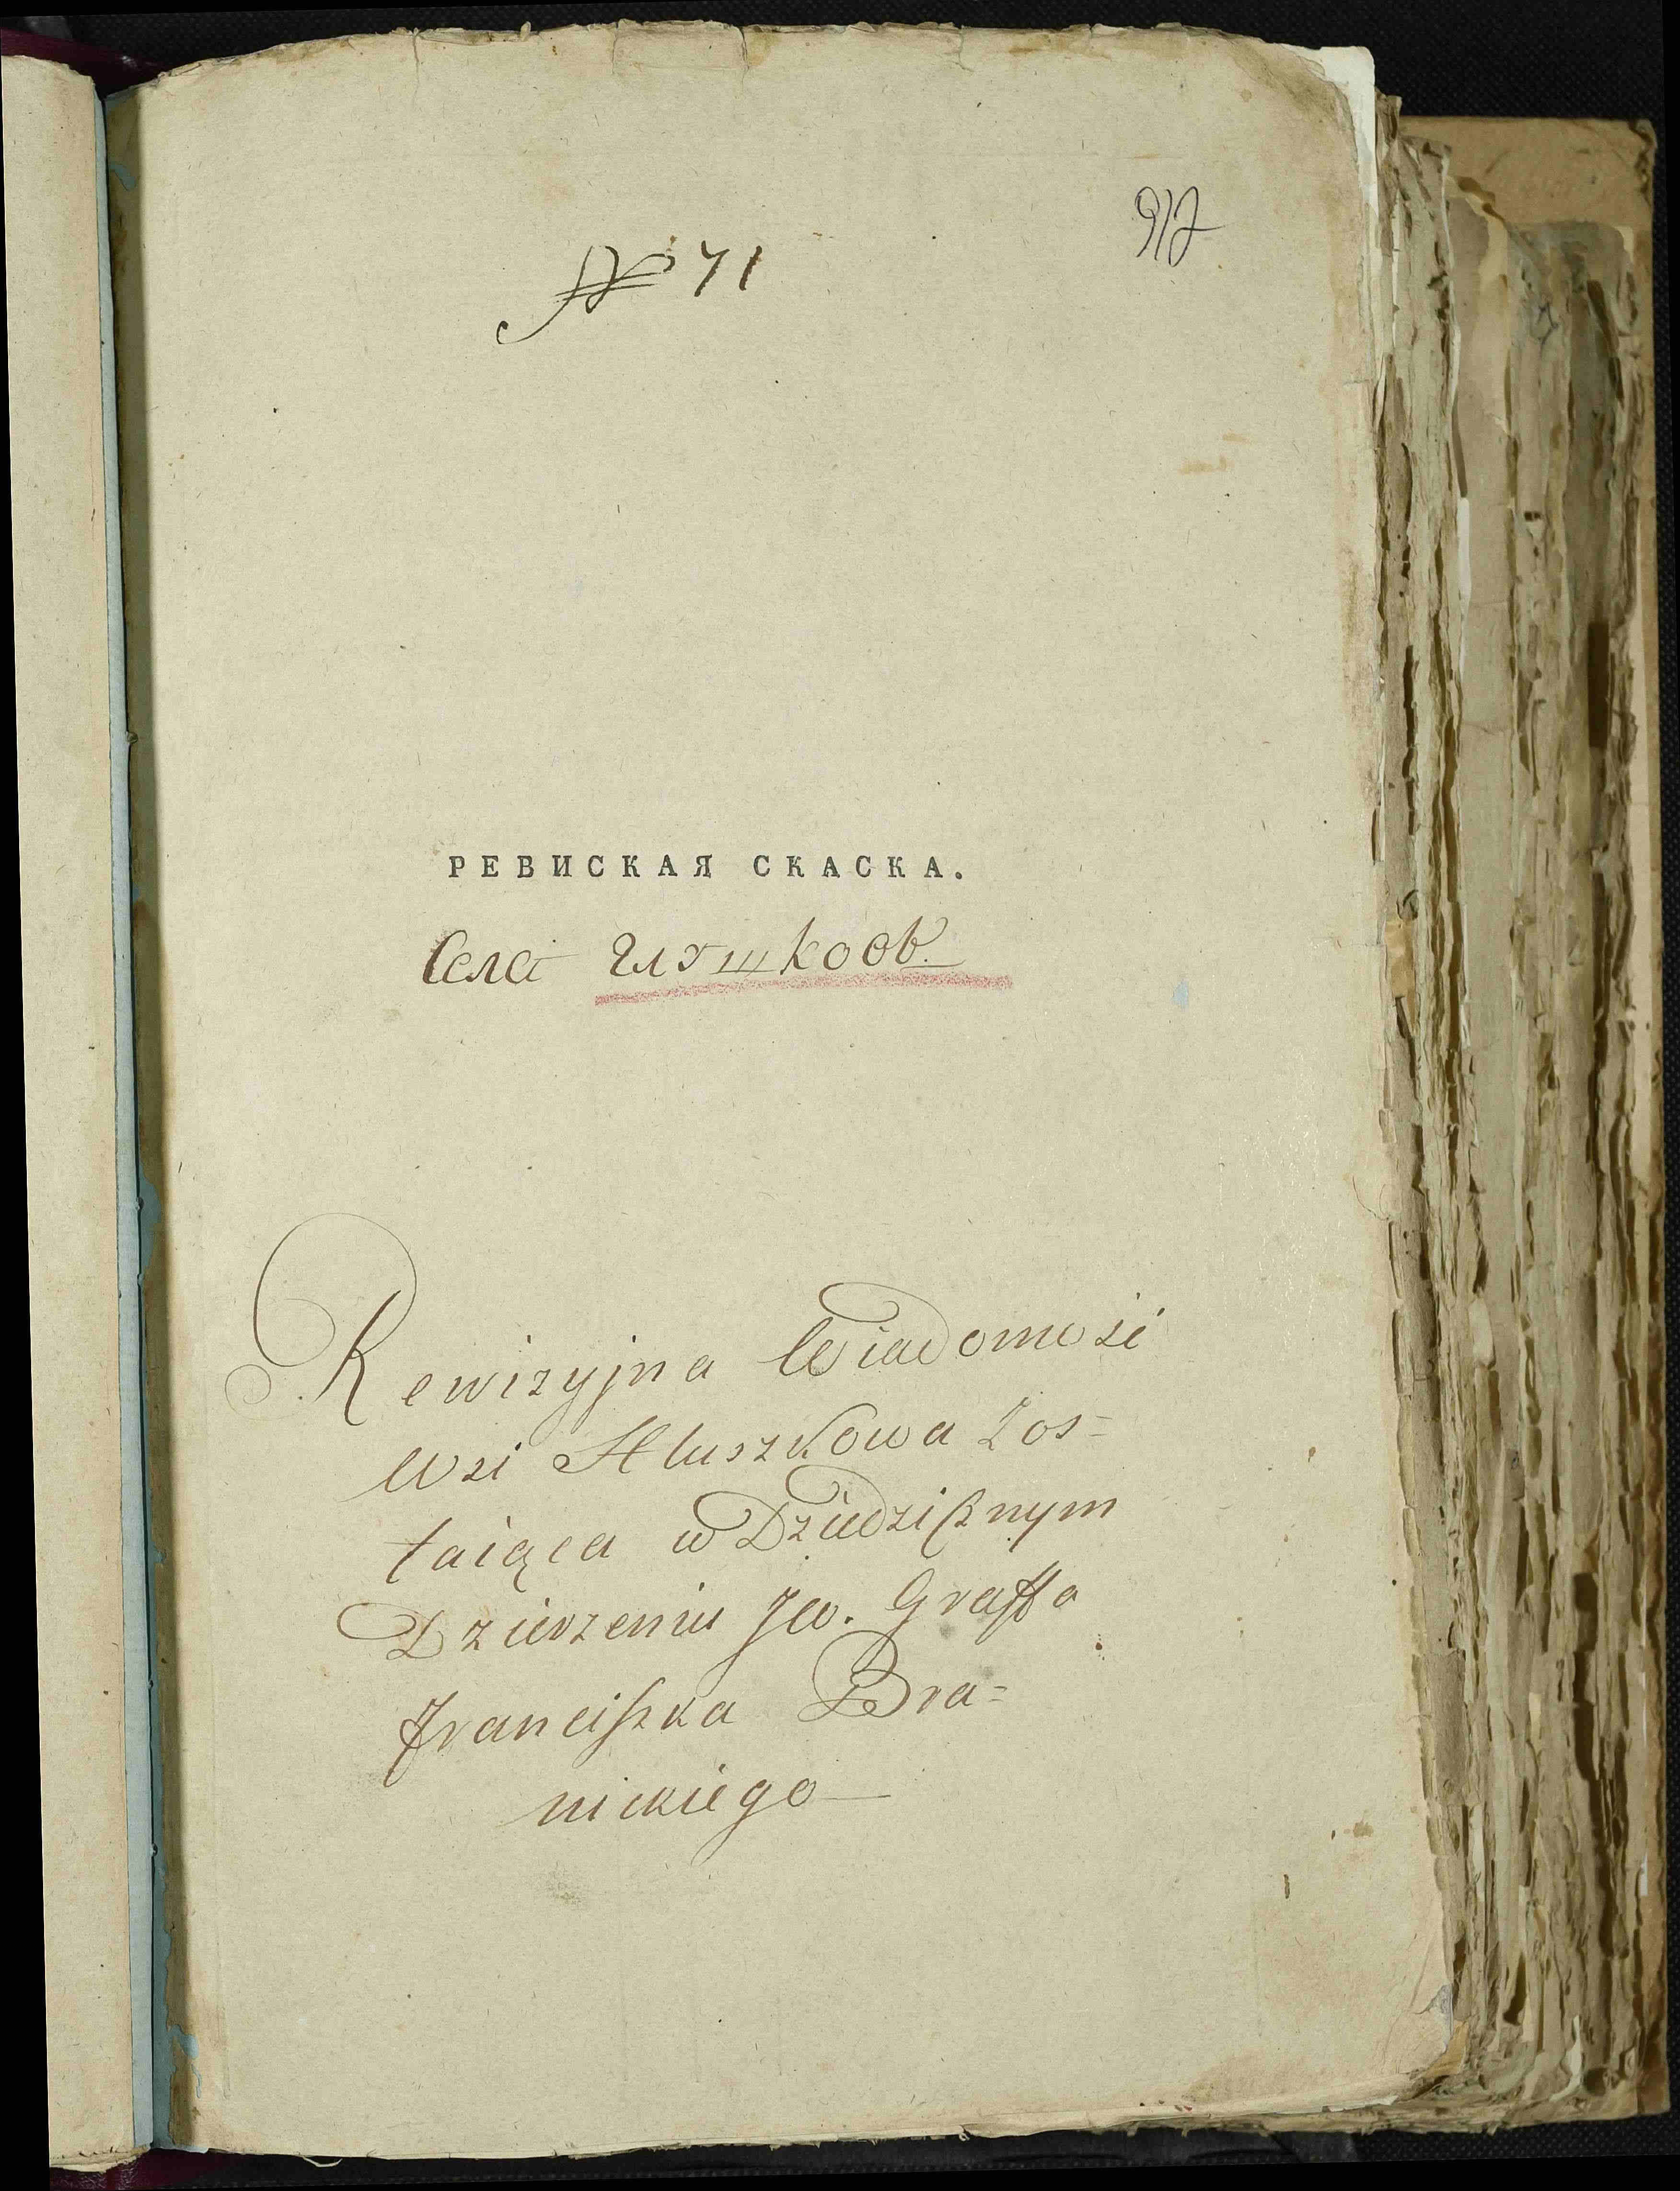 917
№ 71
РЕВИСКАЯ СКАСКА.
Села Глушковъ
Rewizyjna Wiadomość
Wsi Hluszkowa Zos=
taiąca w Dziedzicznym
Dzierzeniu JW. Graffa
Franciszka Bra=
nickiego